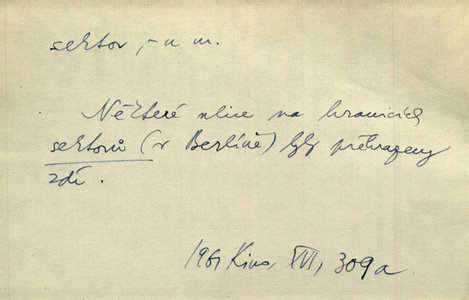 sektor, -u m.
Některé ulice na hranicích
sektorů (v Berlíně) byly přehrazeny
zdí.
1961 Kino, XVI, 309a